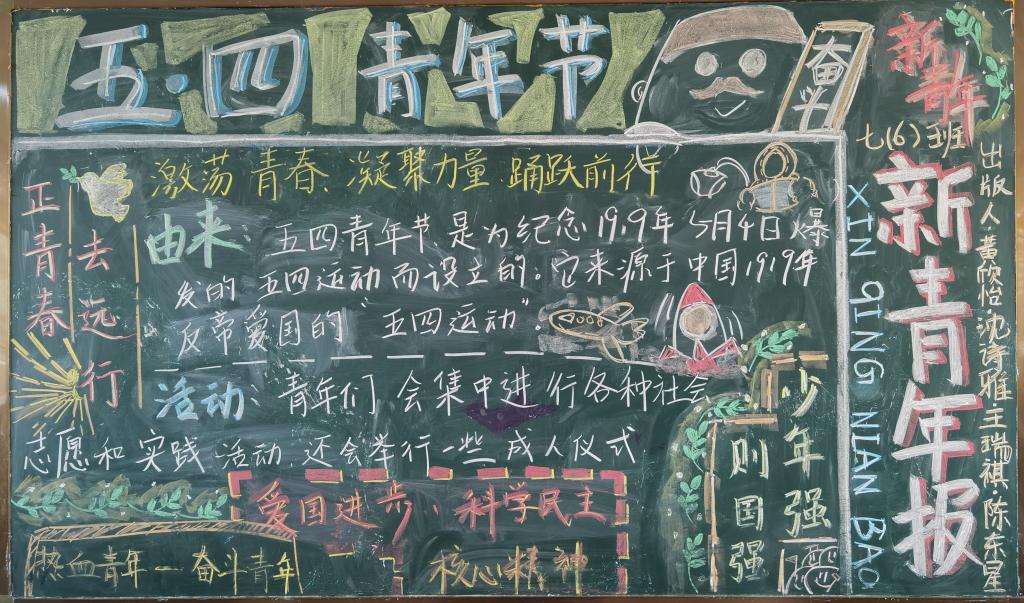 五·四 青年节
奋斗
新青年
七(6)班
新青年报
XIN QING NIAN BAO
出版人·黄欣怡·沈诗雅·王瑞祺·陈东星
激荡青春、凝聚力量 踊跃前行
正青春
去远行
由来: 五四青年节是为纪念1919年5月4日爆
发的五四运动而设立的。它来源于中国1919年
反帝爱国的“五四运动”。
活动、青年们会集中进行各种社会
志愿和实践活动.还会举行一些成人仪式
爱国进步、科学民主
核心精神
热血青年—奋斗青年
少年强
则国强